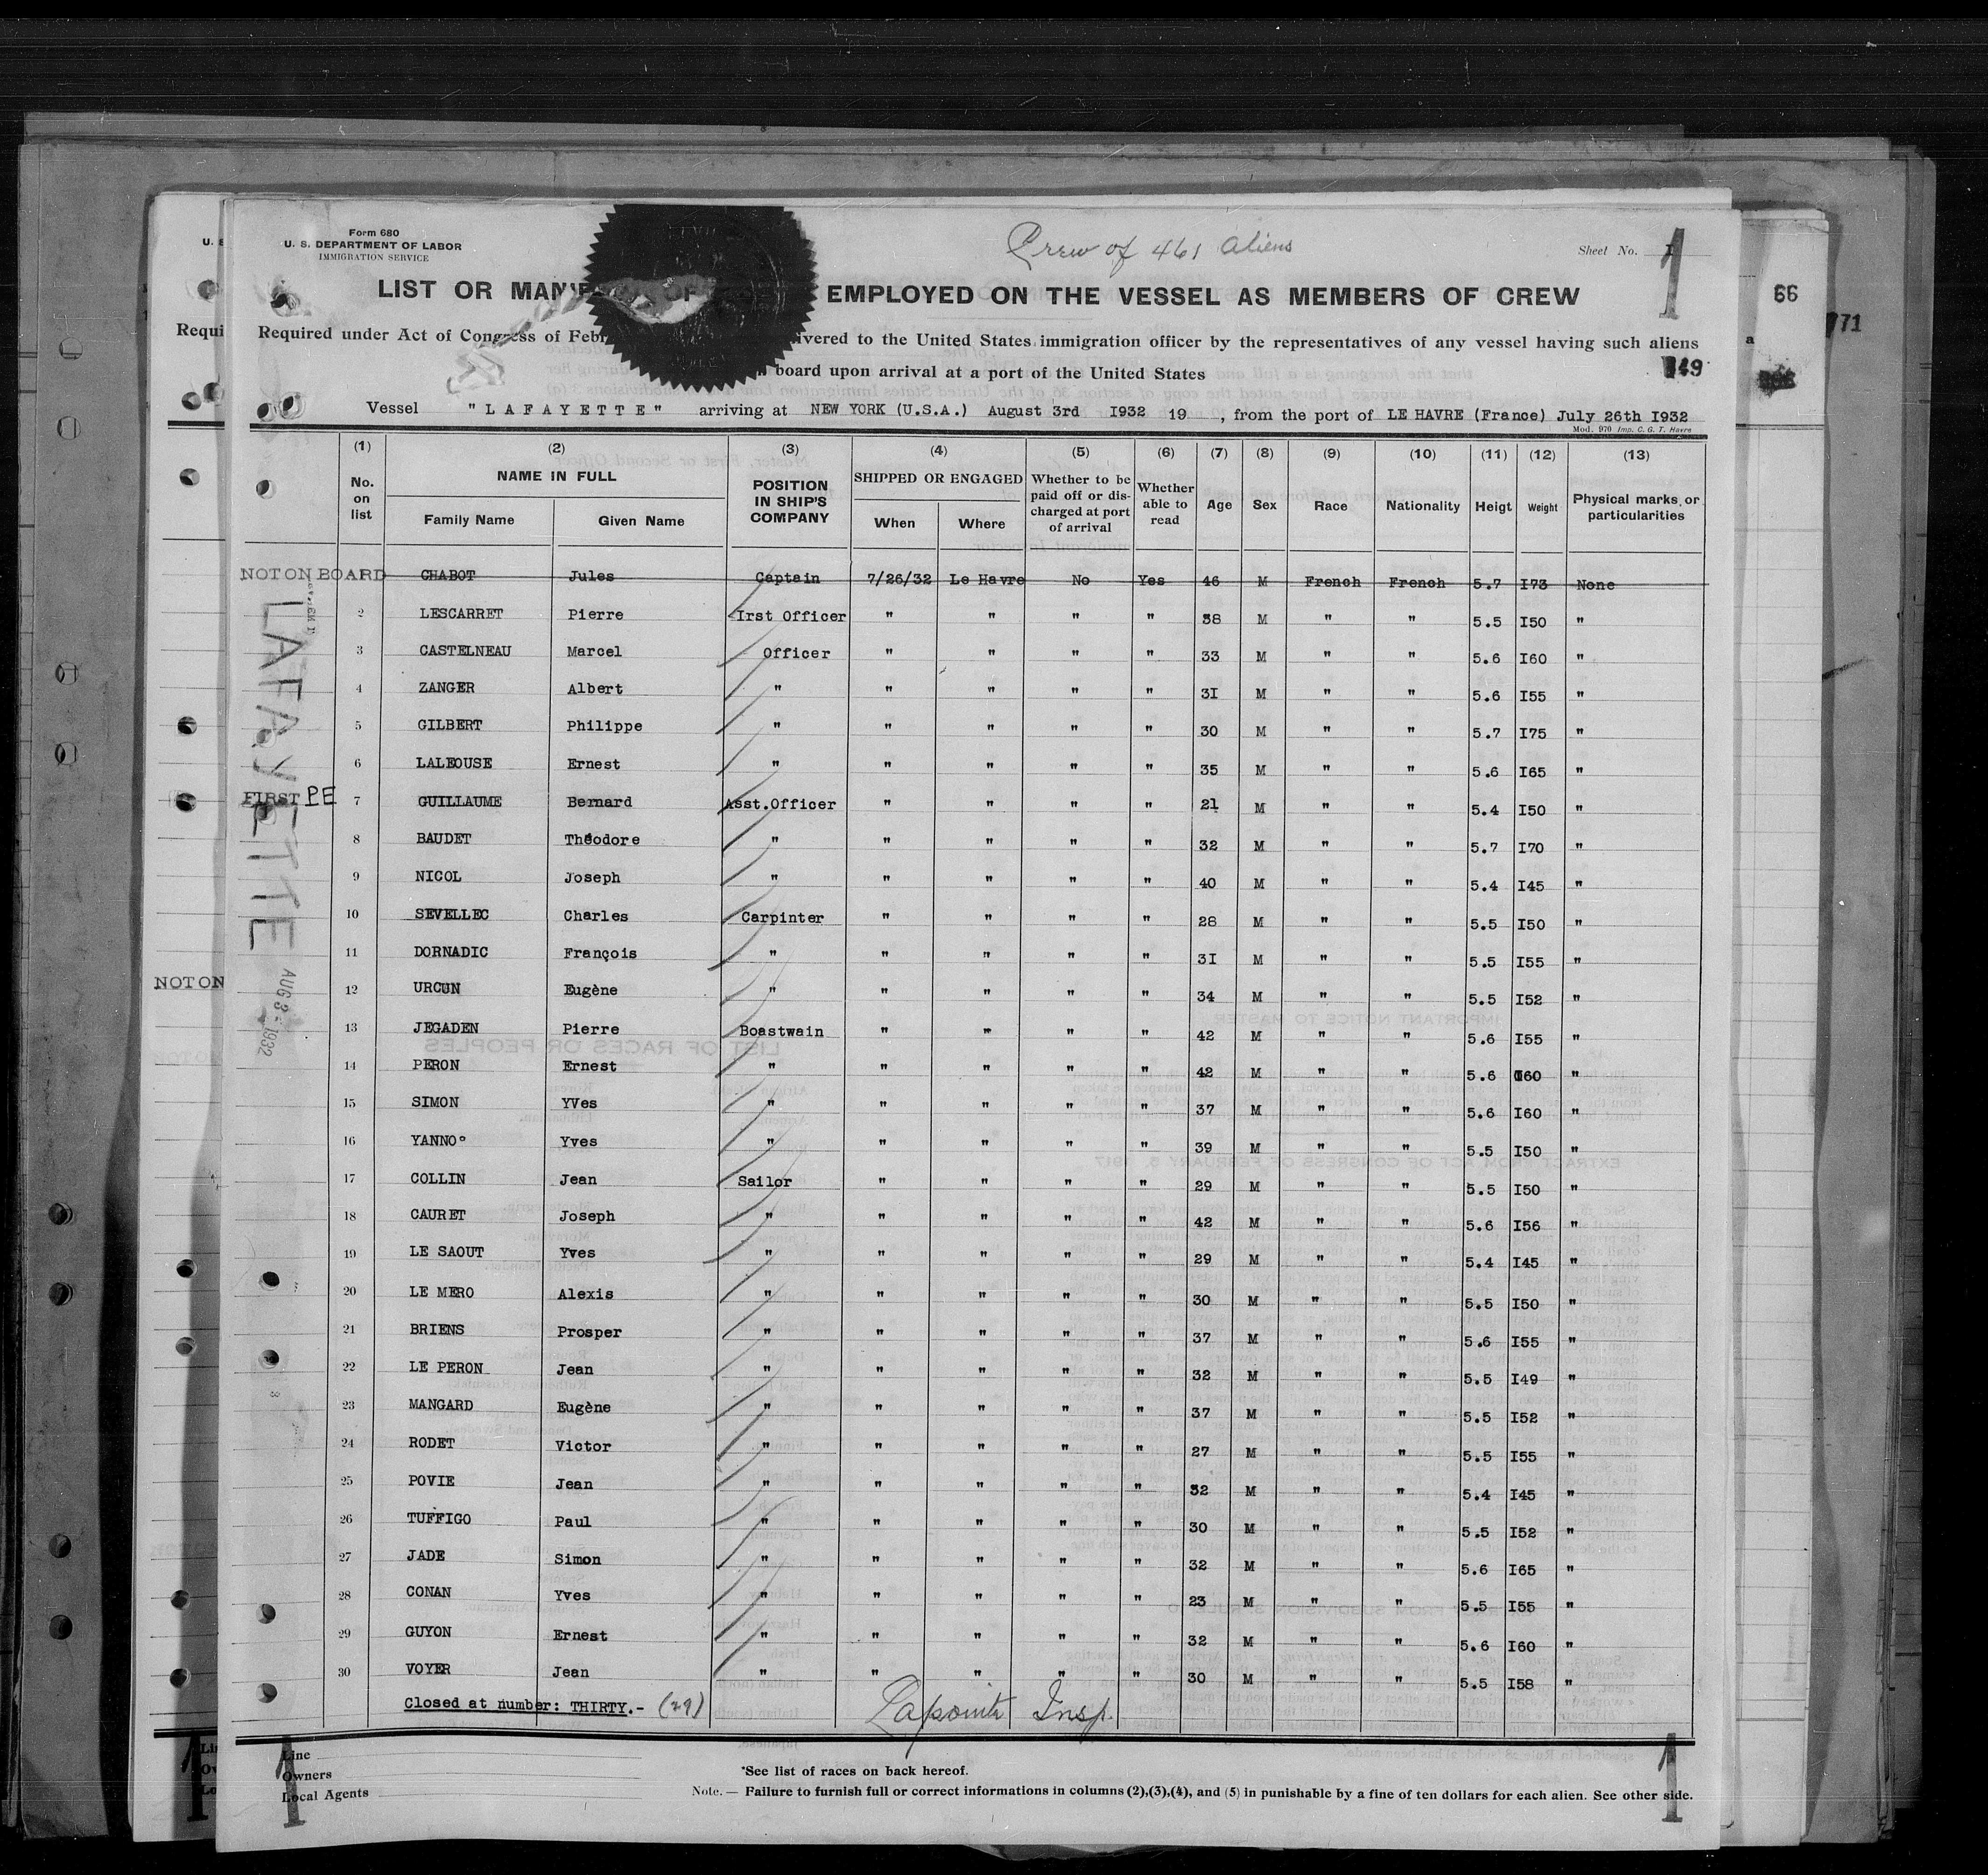 Form 680
U. S. DEPARTMENT OF LABOR
IMMIGRATION SERVICE
Crew of 461 aliens
Sheet No. I
1
LIST OR MANIFEST OF EMPLOYED ON THE VESSEL AS MEMBERS OF CREW
Required under Act of Congress of Feb ivered to the United States immigration officer by the representatives of any vessel having such aliens
board upon arrival at a port of the United States
149
66
71
Vessel "LAFAYETTE" arriving at NEW YORK (U.S.A.) August 3rd I932 19 , from the port of LE HAVRE (France) July 26th I932
Mod. 970 Imp. C. G. T. Havre
(1) (2) (3) (4) (5) (6) (7) (8) (9) (10) (11) (12) (13)
No. on list NAME IN FULL Family Name Given Name POSITION IN SHIP'S COMPANY SHIPPED OR ENGAGED When Where Whether to be paid off or discharged at port of arrival Whether able to read Age Sex Race Nationality Heigt Weight Physical marks or particularities
NOT ON BOARD CHABOT Jules Captain 7/26/32 Le Havre No Yes 46 M French French 5.7 I73 None
2 LESCARRET Pierre Irst Officer " " " " 38 M " " 5.5 I50 "
3 CASTELNEAU Marcel Officer " " " " 33 M " " 5.6 I60 "
4 ZANGER Albert " " " " " 3I M " " 5.6 I55 "
5 GILBERT Philippe " " " " " 30 M " " 5.7 I75 "
6 LALEOUSE Ernest " " " " " 35 M " " 5.6 I65 "
FIRST PE 7 GUILLAUME Bernard Asst.Officer " " " " 21 M " " 5.4 I50 "
8 BAUDET Théodore " " " " " 32 M " " 5.7 I70 "
9 NICOL Joseph " " " " " 40 M " " 5.4 I45 "
10 SEVELLEC Charles Carpinter " " " " 28 M " " 5.5 I50 "
11 DORNADIC François " " " " " 3I M " " 5.5 I55 "
12 URCUN Eugène " " " " " 34 M " " 5.5 I52 "
13 JEGADEN Pierre Boastwain " " " " 42 M " " 5.6 I55 "
14 PERON Ernest " " " " " 42 M " " 5.6 I60 "
15 SIMON YVes " " " " " 37 M " " 5.6 I60 "
16 YANNO° Yves " " " " " 39 M " " 5.5 I50 "
17 COLLIN Jean Sailor " " " " 29 M " " 5.5 I50 "
18 CAURET Joseph " " " " " 42 M " " 5.6 I56 "
19 LE SAOUT Yves " " " " " 29 M " " 5.4 I45 "
20 LE MERO Alexis " " " " " 30 M " " 5.5 I50 "
21 BRIENS Prosper " " " " " 37 M " " 5.6 I55 "
22 LE PERON Jean " " " " " 32 M " " 5.5 I49 "
23 MANGARD Eugène " " " " " 37 M " " 5.5 I52 "
24 RODET Victor " " " " " 27 M " " 5.5 I55 "
25 POVIE Jean " " " " " 32 M " " 5.4 I45 "
26 TUFFIGO Paul " " " " " 30 M " " 5.5 I52 "
27 JADE Simon " " " " " 32 M " " 5.6 I65 "
28 CONAN Yves " " " " " 23 M " " 5.5 I55 "
29 GUYON Ernest " " " " " 32 M " " 5.6 I60 "
30 VOYER Jean " " " " " 30 M " " 5.5 I58 "
Closed at number: THIRTY.- (29) Lapointe Insp.
LAFAYETTE
AUG 3 - 1932
NOT ON
Line
Owners
Local Agents
*See list of races on back hereof.
Note. — Failure to furnish full or correct informations in columns (2),(3),(4), and (5) in punishable by a fine of ten dollars for each alien. See other side.
1
1